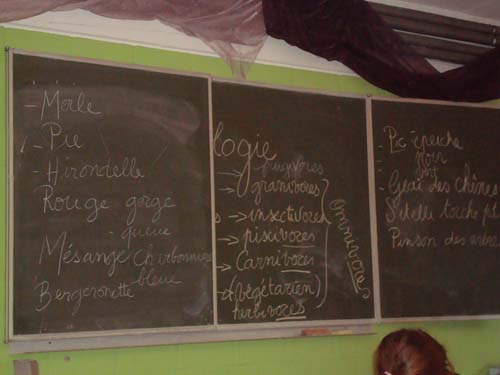 - Merle
- Pie
- Hirondelle
Rouge gorge
queue
Mésange charbonnière
bleue
Bergeronette
logie
→ frugivores
→ granivores
s → insectivores
→ piscivores
→ Carnivores
→ (végétarien)
herbivores
Omnivores
Pic épeiche
noir
vert
- Geai des chênes
Sitelle torche pot
Pinson des arbres